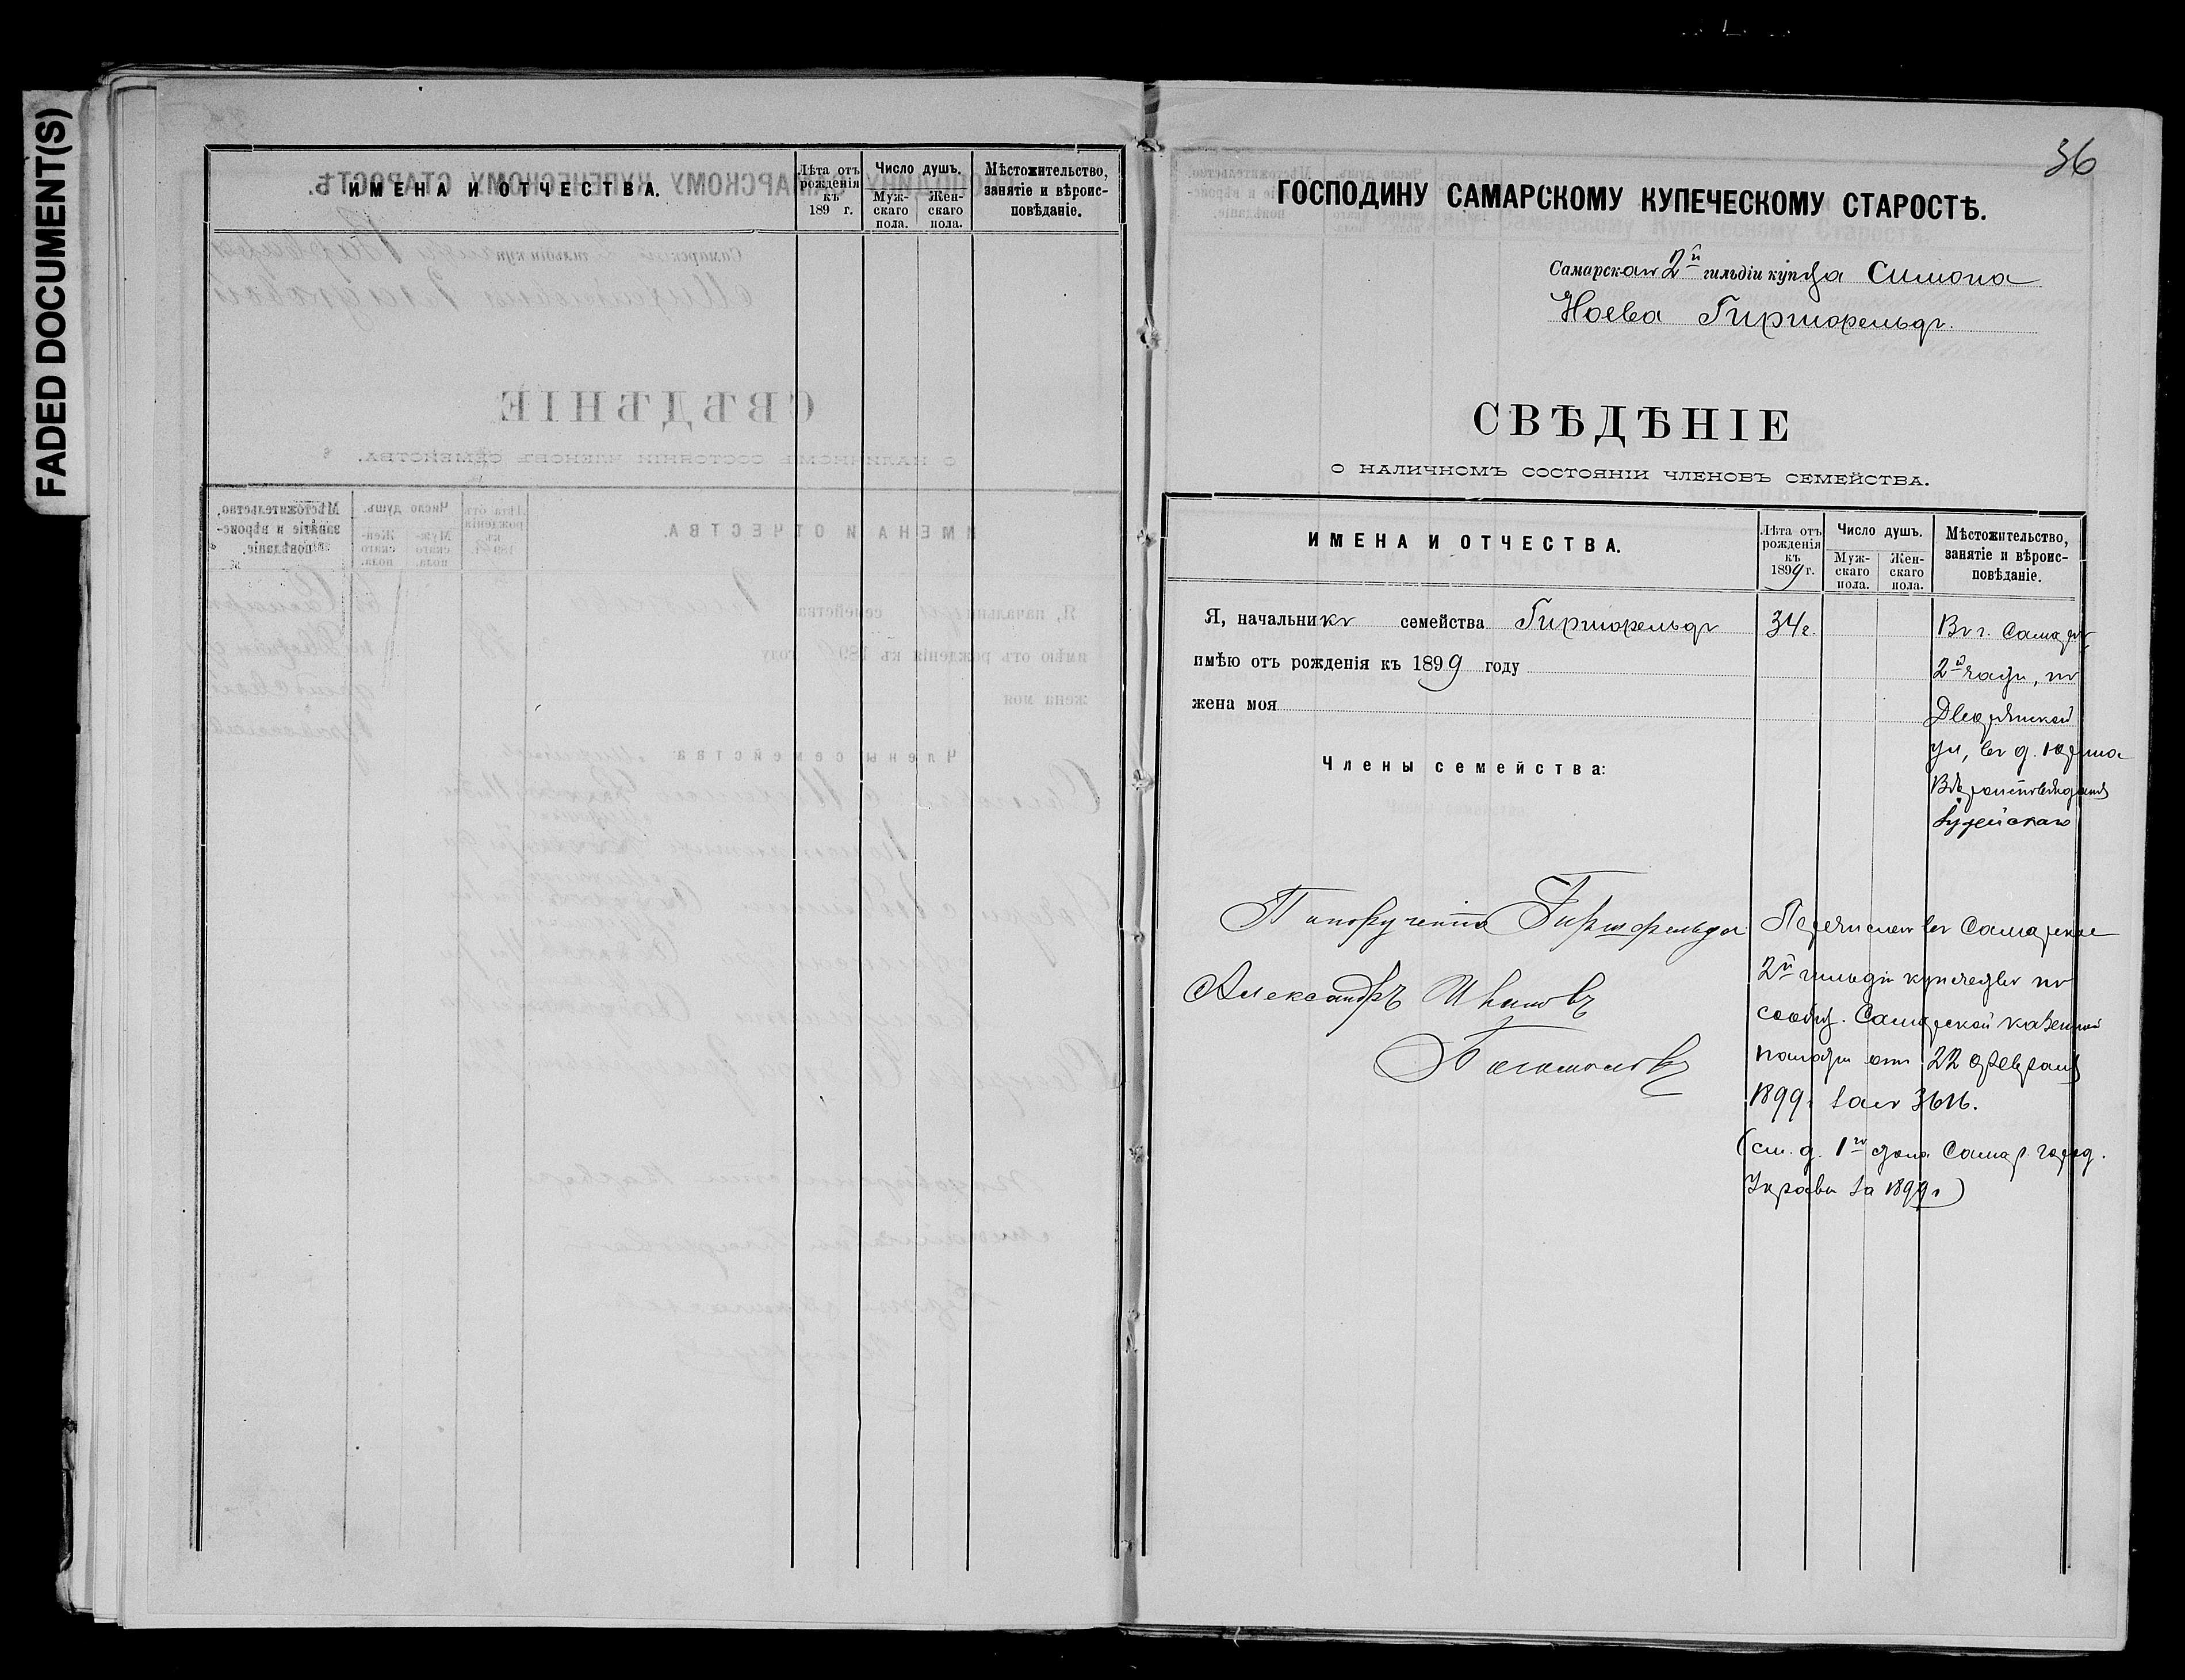 FADED DOCUMENT(S)
ИМЕНА И ОТЧЕСТВА.
Лѣта отъ рожденія къ 189 г.
Число душъ.
Муж-скаго пола.
Жен-скаго пола.
Мѣстожительство, занятіе и вѣроис-повѣданіе.
36
ГОСПОДИНУ САМАРСКОМУ КУПЕЧЕСКОМУ СТАРОСТѢ.
Самарскаго 2й гильдіи купца Симона
Ноева Гиршфельдъ.
СВѢДѢНІЕ
О НАЛИЧНОМЪ СОСТОЯНІИ ЧЛЕНОВЪ СЕМЕЙСТВА.
ИМЕНА И ОТЧЕСТВА.
Лѣта отъ рожденія къ 1899 г.
Число душъ.
Муж-скаго пола.
Жен-скаго пола.
Мѣстожительство, занятіе и вѣроис-повѣданіе.
Я, начальникъ семейства Гиршфельдъ 34 г.
имѣю отъ рожденія къ 1899 году
жена моя
Члены семейства:
Въ г. Самарѣ
2й части, по
Дворянской
ул, въ д.
Вѣроисповѣданія
Іудейскаго
По порученію Гиршфельда
Александръ Ивановъ
Богомоловъ
Перечисленъ въ Самарское
2й гильдіи купечество по
сообщ. Самарской казенной
палаты отъ 22 февраля
1899 г. за №
(см. д. 1го стола Самар. город.
Управы за 1899 г)